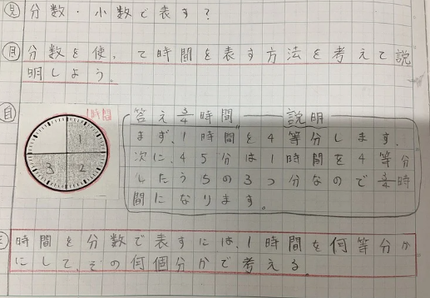 見 分数・小数で表す?
目 分数を使って時間を表す方法を考えて説
明しよう。
自
1時間
1
2
3
答え 3/4時間 説明
まず、1時間を4等分します。
次に、45分は1時間を4等分
したうちの3つ分なので3/4時
間になります。
時間を分数で表すには、1時間を何等分か
にして、その何個分かで考える。